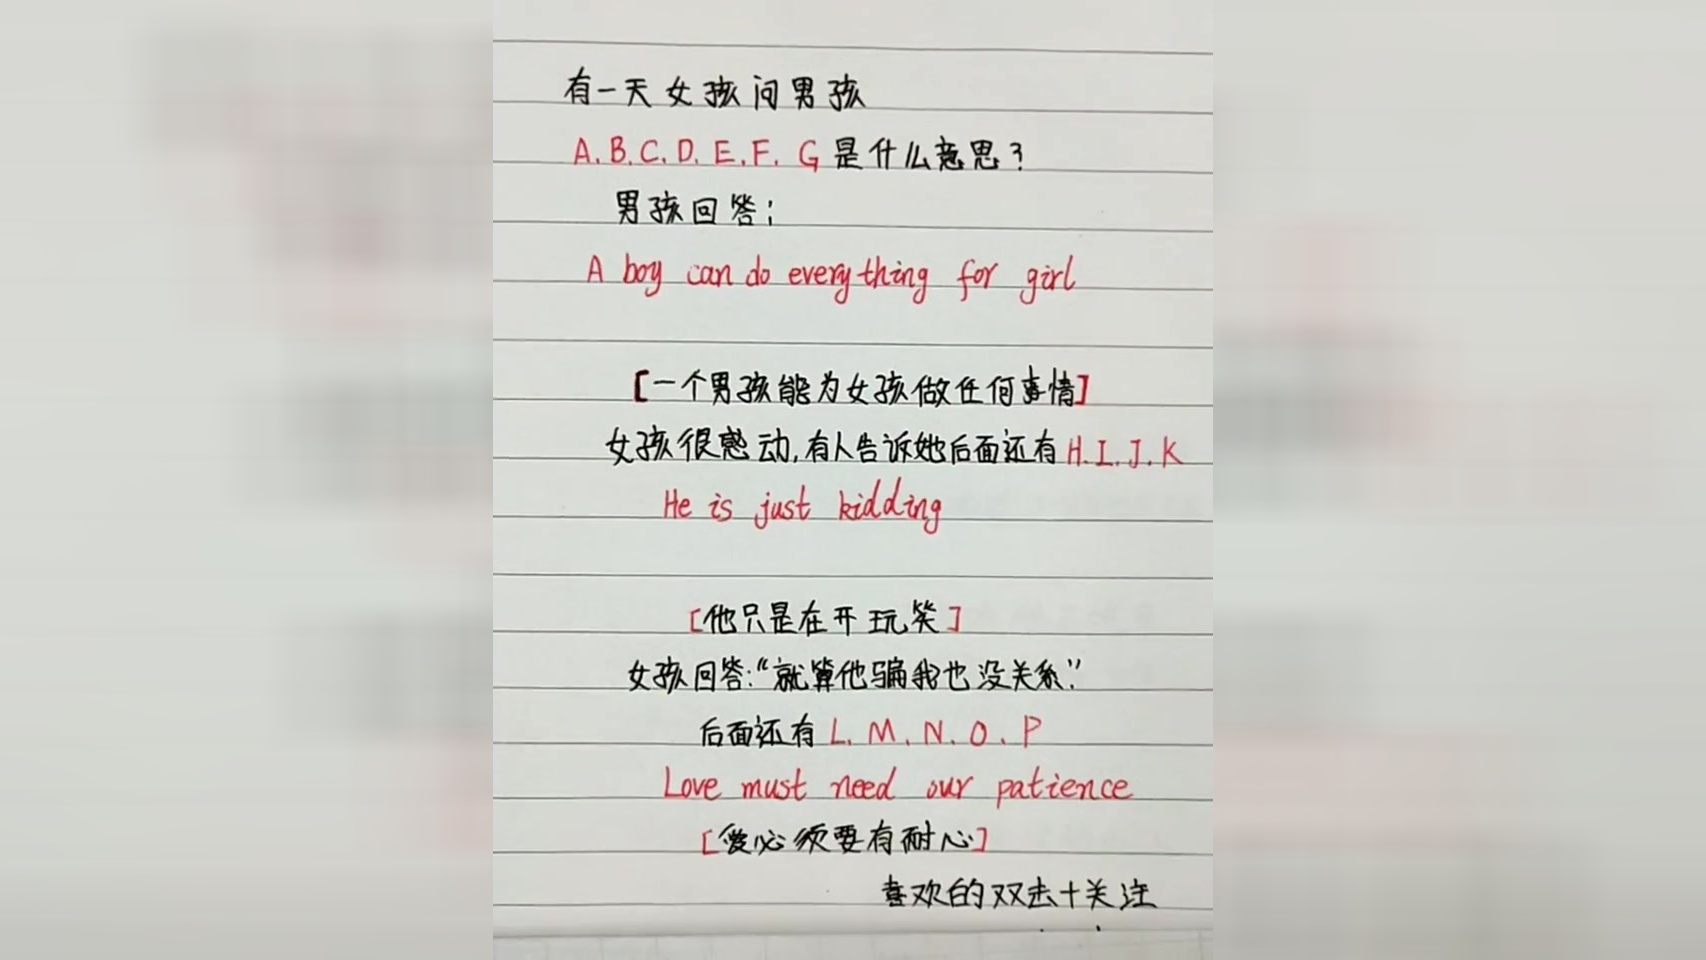 有一天女孩问男孩
A.B.C.D.E.F.G是什么意思？
男孩回答：
A boy can do everything for girl
[一个男孩能为女孩做任何事情]
女孩很感动,有人告诉她后面还有H.I.J.K
He is just kidding
[他只是在开玩笑]
女孩回答:“就算他骗我也没关系”
后面还有L.M.N.O.P
Love must need our patience
[爱必须要有耐心]
喜欢的双击+关注